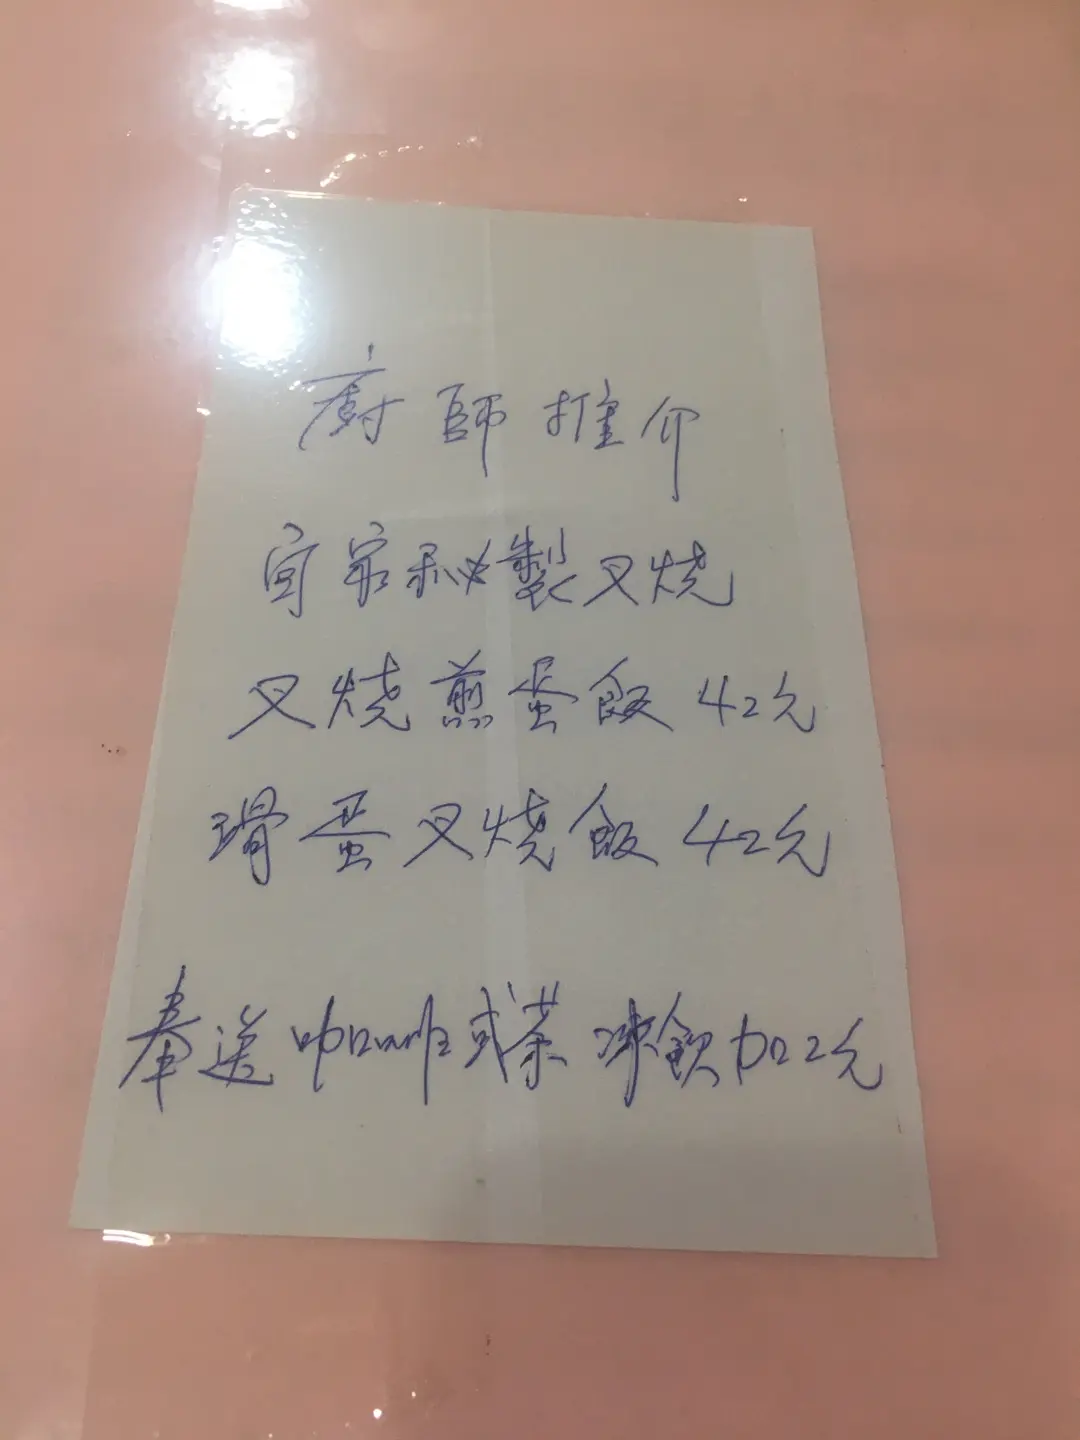 廚師推介
秘製叉燒
叉燒煎蛋飯 42元
滑蛋叉燒飯 42元
奉送咖啡或茶 凍飲加2元